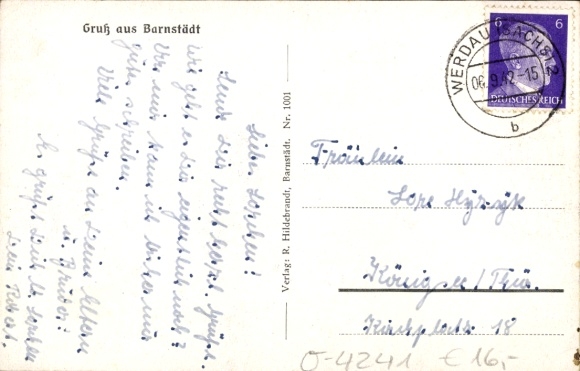 Gruß aus Barnstädt
Liebe Lorchen!
Send Dir recht herzl. Grüße.
Wie geht es Dir eigentlich noch?
Von mir kann ich bisher nur
gutes schreiben.
Viele Grüße an Deine Eltern
u. Bruder!
Es grüßt Dich lb. Lorchen
Dein Robert.
Verlag: R. Hildebrandt, Barnstädt. Nr. 1001
WERDAU (SACHS) 2
06.9.42.-15
b
6 6
DEUTSCHES REICH
Fräulein
Lore
Königsee/Thür.
Kirchplatz 18
O-4241 € 16,-